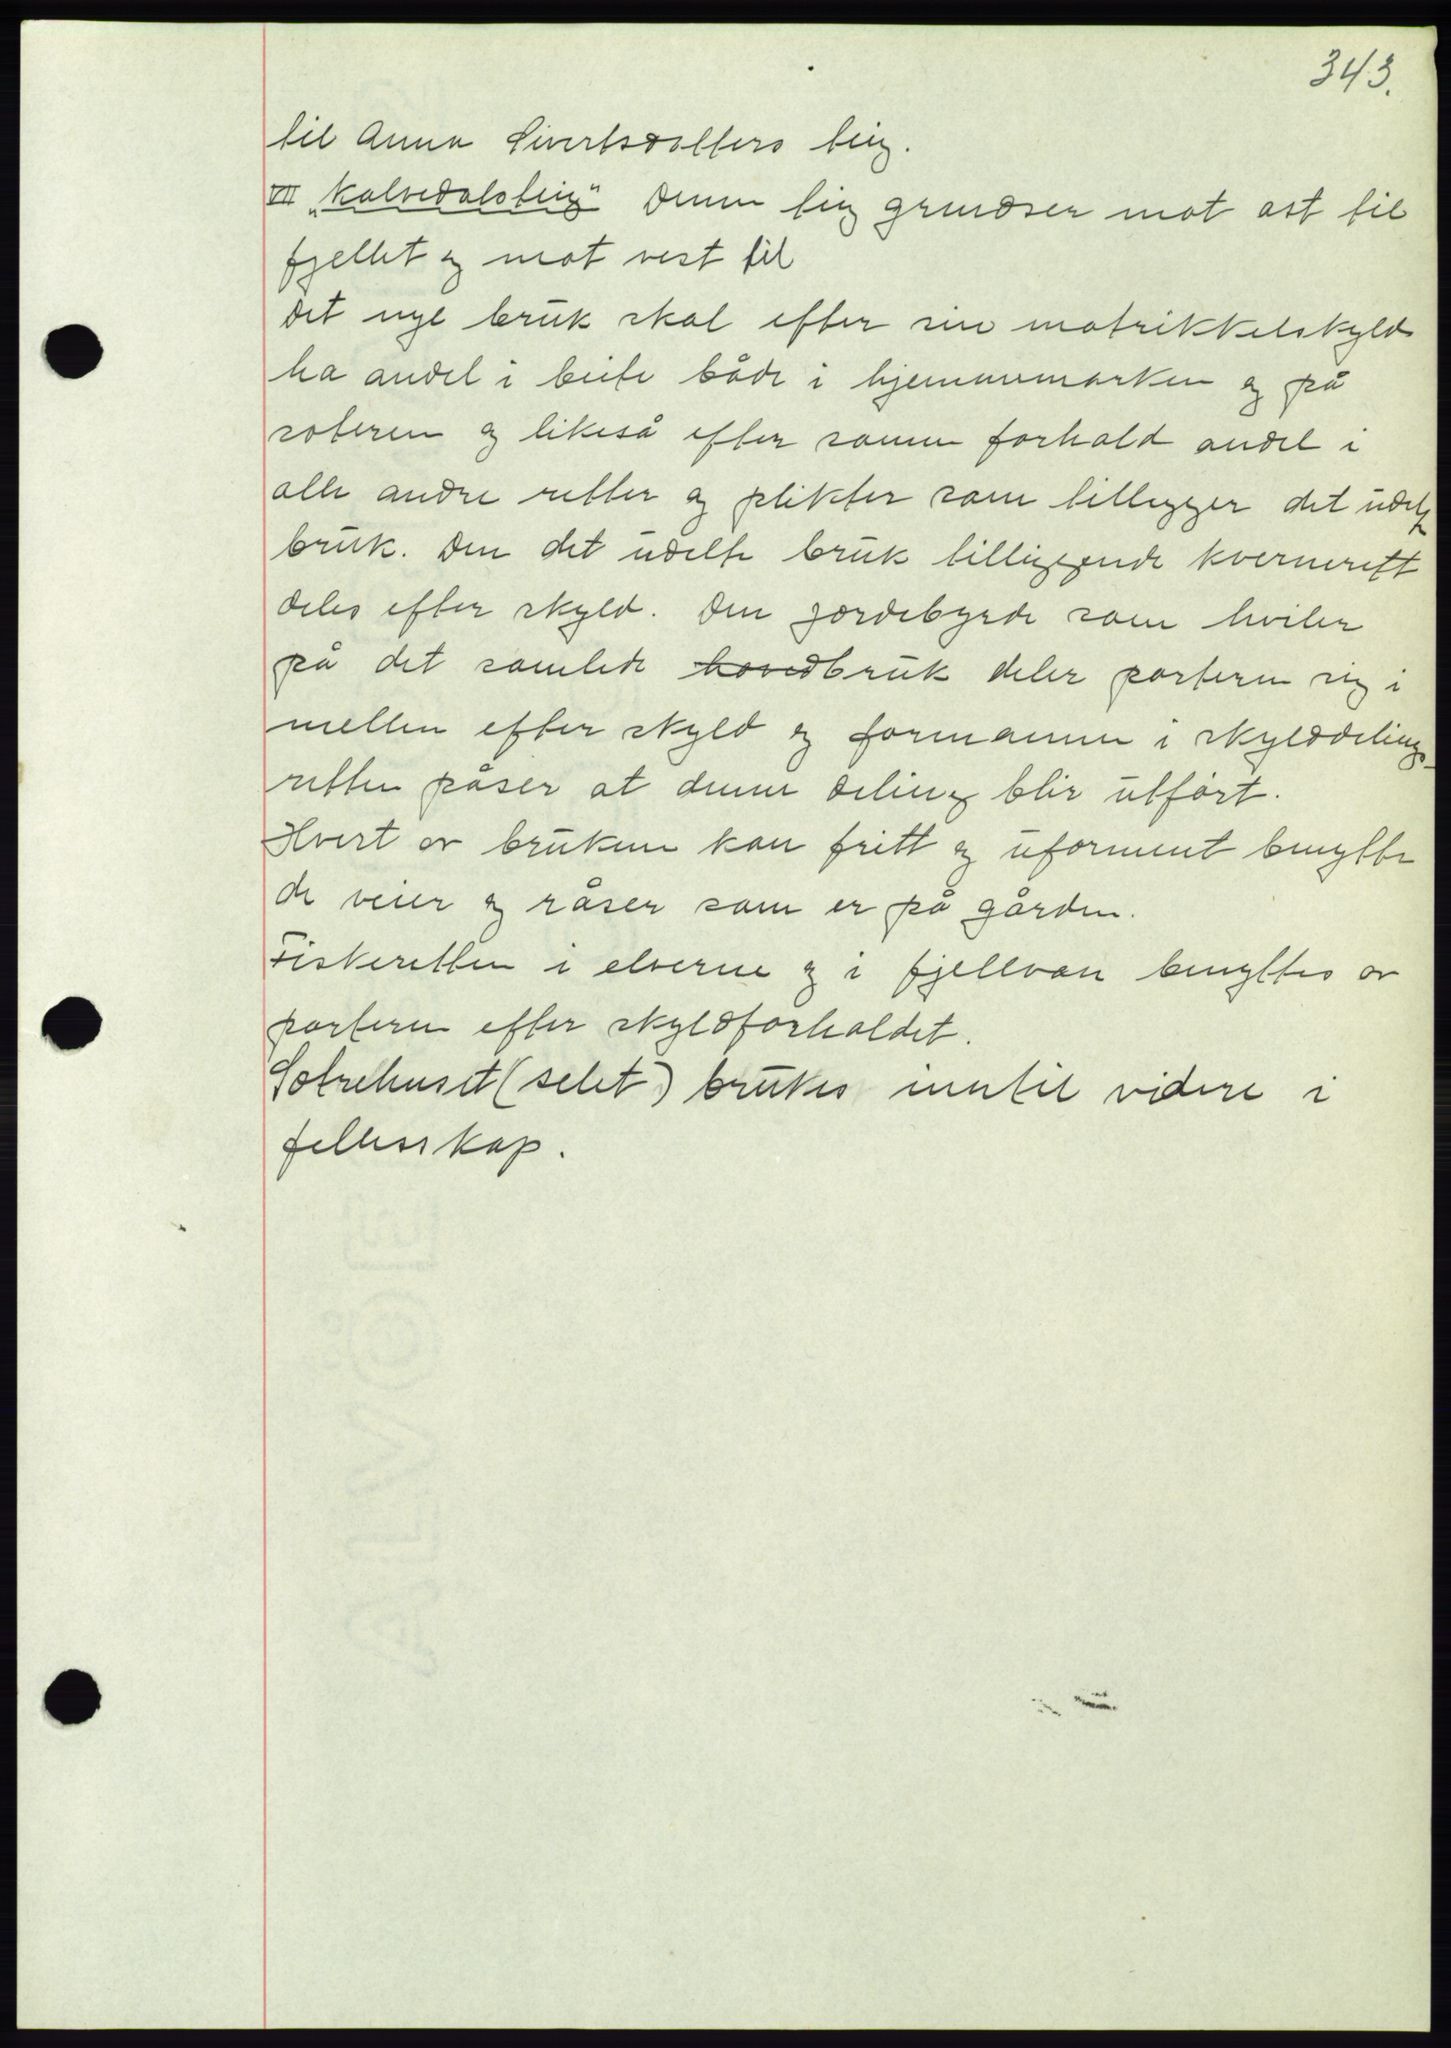 343.
til Anna Sivertsdotters teig.
VII „Kalvedalsteig" Denne teig grendser mot ost til
fjellet og mot vest til
Det nye bruk skal efter sin matrikkelskyld
ha andel i beite både i hjemmemarken og på
sæteren og likeså efter samme forhold andel i
alle andre retter og plikter som tillegger det udelte
bruk. Den det udelte bruk tilliggende kvernerett
deles efter skyld. Den gjerdebyrde som hviler
på det samlede hovedbruk deler partene sig i
mellem efter skyld og formannen i skylddelings-
retten påser at denne deling blir utført.
Hvert av brukene kan fritt og uforment benytte
de veier og råser som er på gården.
Fiskeretten i elvene og i fjellvan benyttes av
partene efter skyldforholdet.
Sætrehuset (selet) brukes inntil videre i
fellesskap.